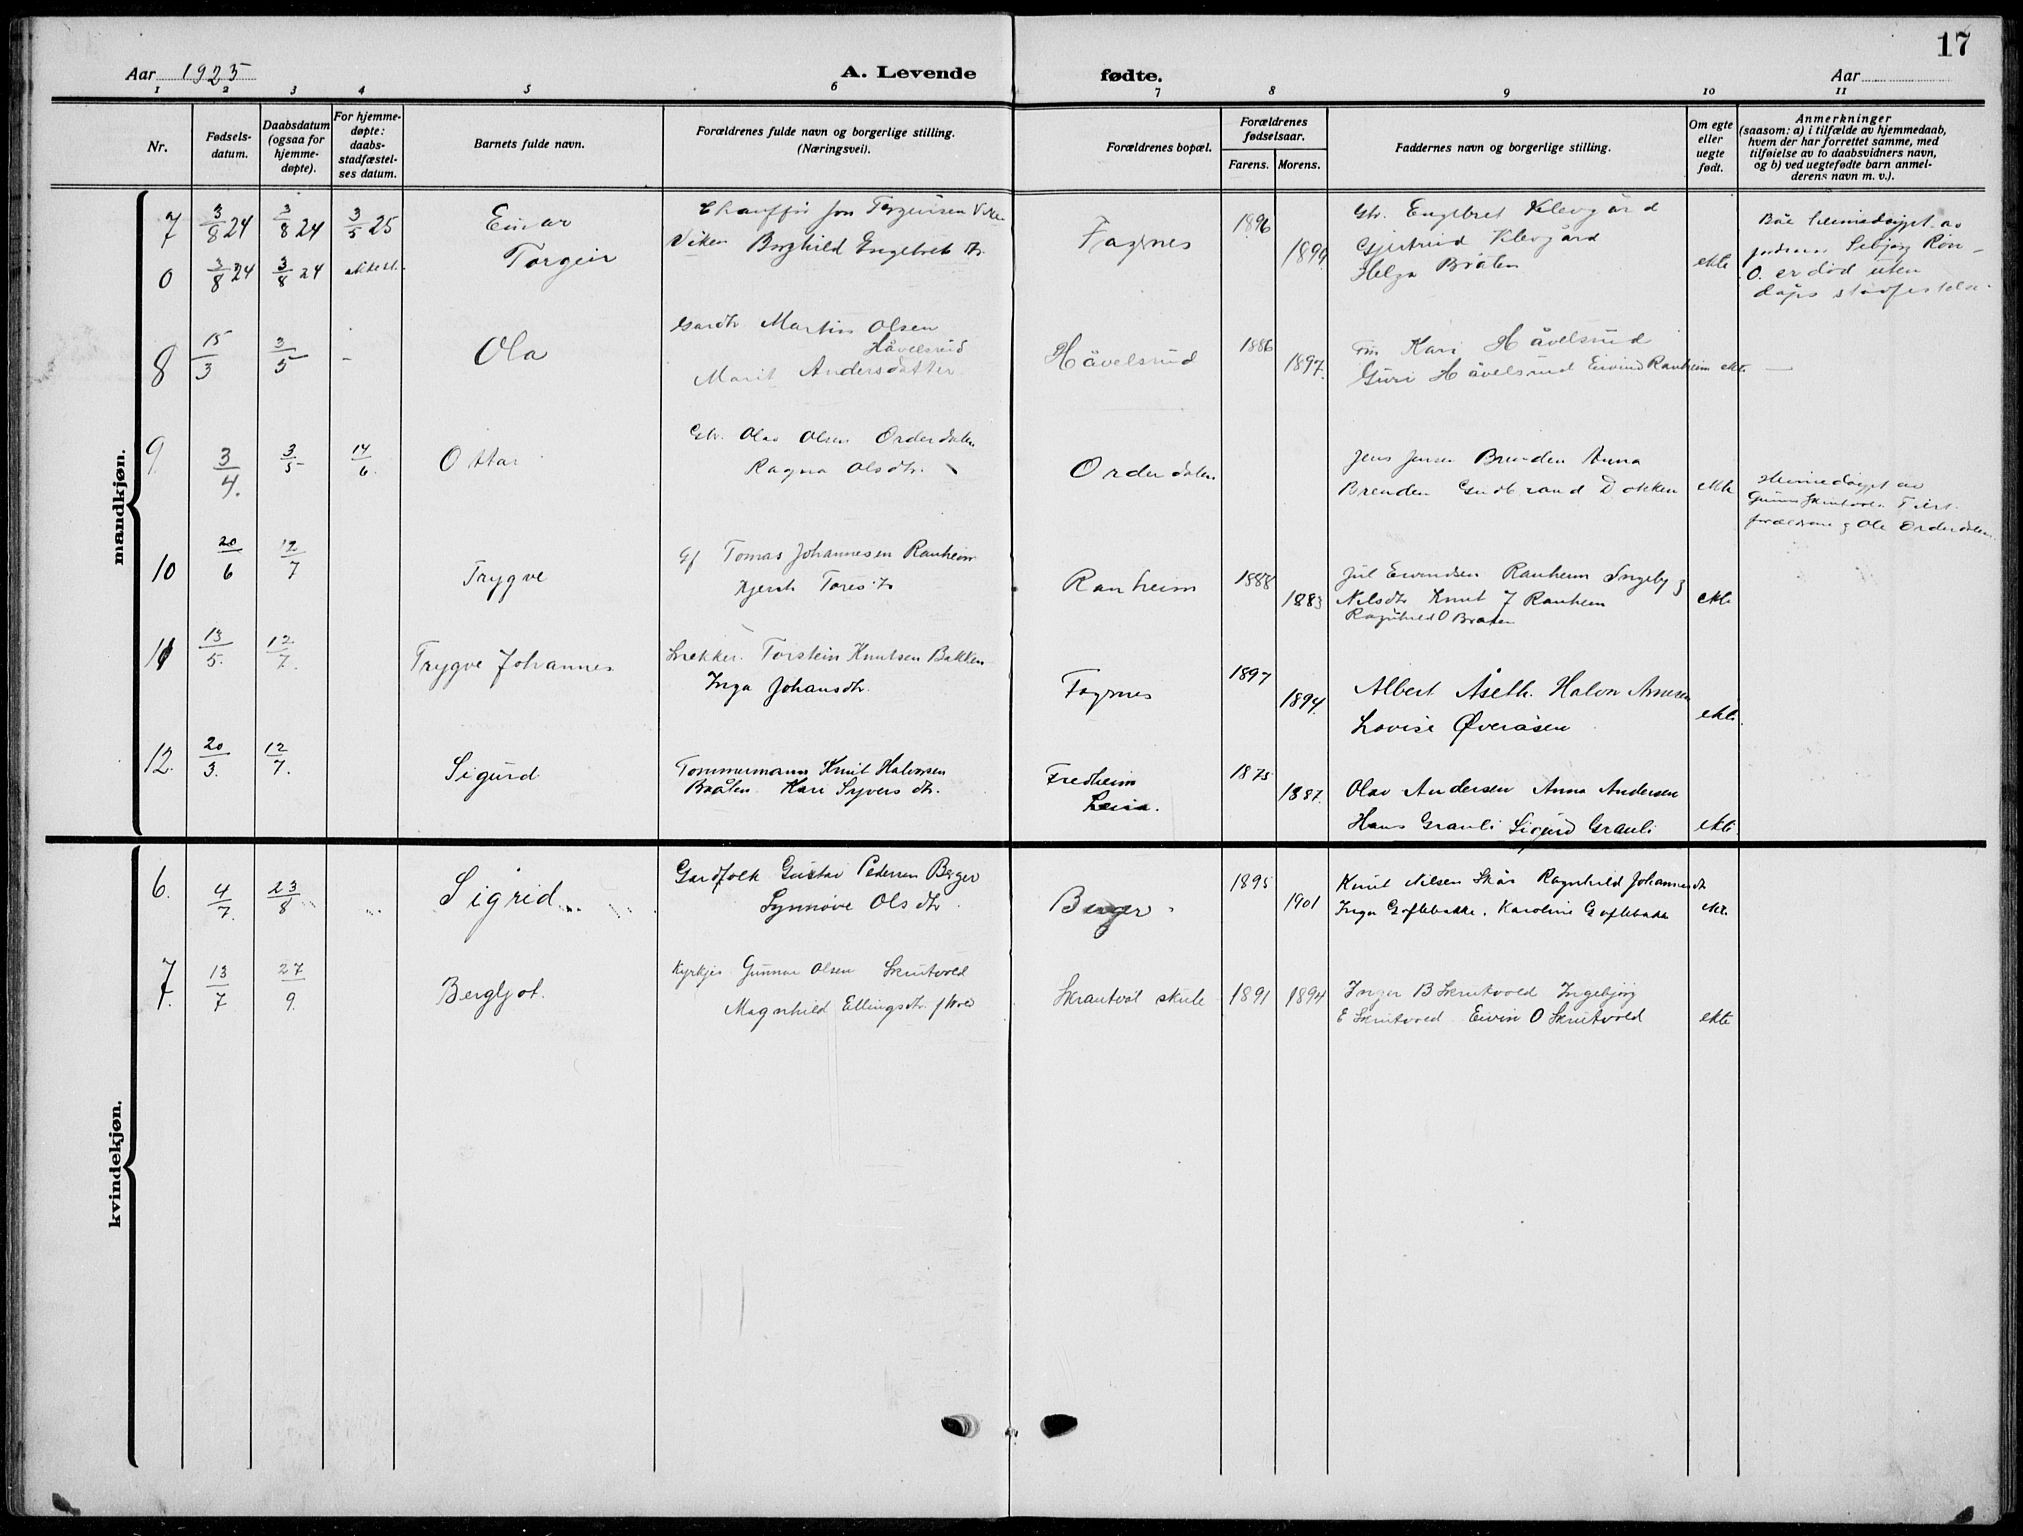 17
Aar 1925
A. Levende fødte.
Aar
1 2 3 4 5 6 7 8 9 10 11
Nr.
Fødsels-
datum.
Daabsdatum
(ogsaa for
hjemme-
døpte).
For hjemme-
døpte:
daabs-
stadfæstel-
ses datum.
Barnets fulde navn.
Forældrenes fulde navn og borgerlige stilling.
(Næringsvei).
Forældrenes bopæl.
Forældrenes
fødselsaar.
Farens. Morens.
Faddernes navn og borgerlige stilling.
Om egte
eller
uegte
født.
Anmerkninger
(saasom: a) i tilfælde av hjemmedaab,
hvem der har forrettet samme, med
tilføielse av to daabsvidners navn,
og b) ved uegtefødte barn anmel-
derens navn m. v.).
mandkjøn.
7 3/8 24 3/8 24 3/5 25 Einar
0 3/8 24 3/8 24 Torgeir
Viken Borghild Engebret dr.
Fagnes
1896
1899
Engebret Klevgård
Klevgård
Helga Bråten
ekte
O. er død uten
8 15/3 3/5 - Ola
Martin Olsen
Håvelsrud
Marit Andersdatter
Håvelsrud
1886
1897.
Kari Håvelsrud
Guri Håvelsrud Eivind Ranheim ekt.
9 3/4. 3/5 14/6. Ottar
Olav Olsen Orderdalen
Ragna Olsdtr.
Orderdalen
Jens Jensen Brenden Anna
Brenden Gudbrand Dokken
ekte
Ole Orderdalen
10 20/6 12/7 Trygve
Gf Tomas Johannesen Ranheim
Ranheim
1888
1883
Ranheim
Nilsdtr Knut J Ranheim
Ragnhild O Bråten
ekte
11 13/5. 12/7. Trygve Johannes
Torstein Knutsen Bakken
Inga Johansdtr.
Fagnes
1897
1894.
Albert Åseth. Halvor Arnesen
Lovise Øveråsen
ekte.
12. 20/3. 12/7. Sigurd
Tømmermann Knut Halvorsen
Bråten. Kari Syversdtr.
Fredheim
Leira.
1875
1887.
Olav Andersen Anna Andersen
Hans Granli Sigurd Granli
ekte.
kvindekjøn.
6. 4/7. 23/8 Sigrid
Gardfolk Gustav Pedersen Berger
Synnøve Olsdtr.
Berger
1895
1901
Knut Nilsen Skår Ragnhild Johannesdtr
Inga Goflebakke. Karoline Goflebakk
ekt.
7. 13/7 27/9. Bergljot.
Gunnar Olsen Skrutvold
Magnhild Ellingsdtr.
Skrautvål skule
1891 1894
Inger B Skrutvold Ingebjørg
E Skrutvold Eivin O Skrutvold
ekte